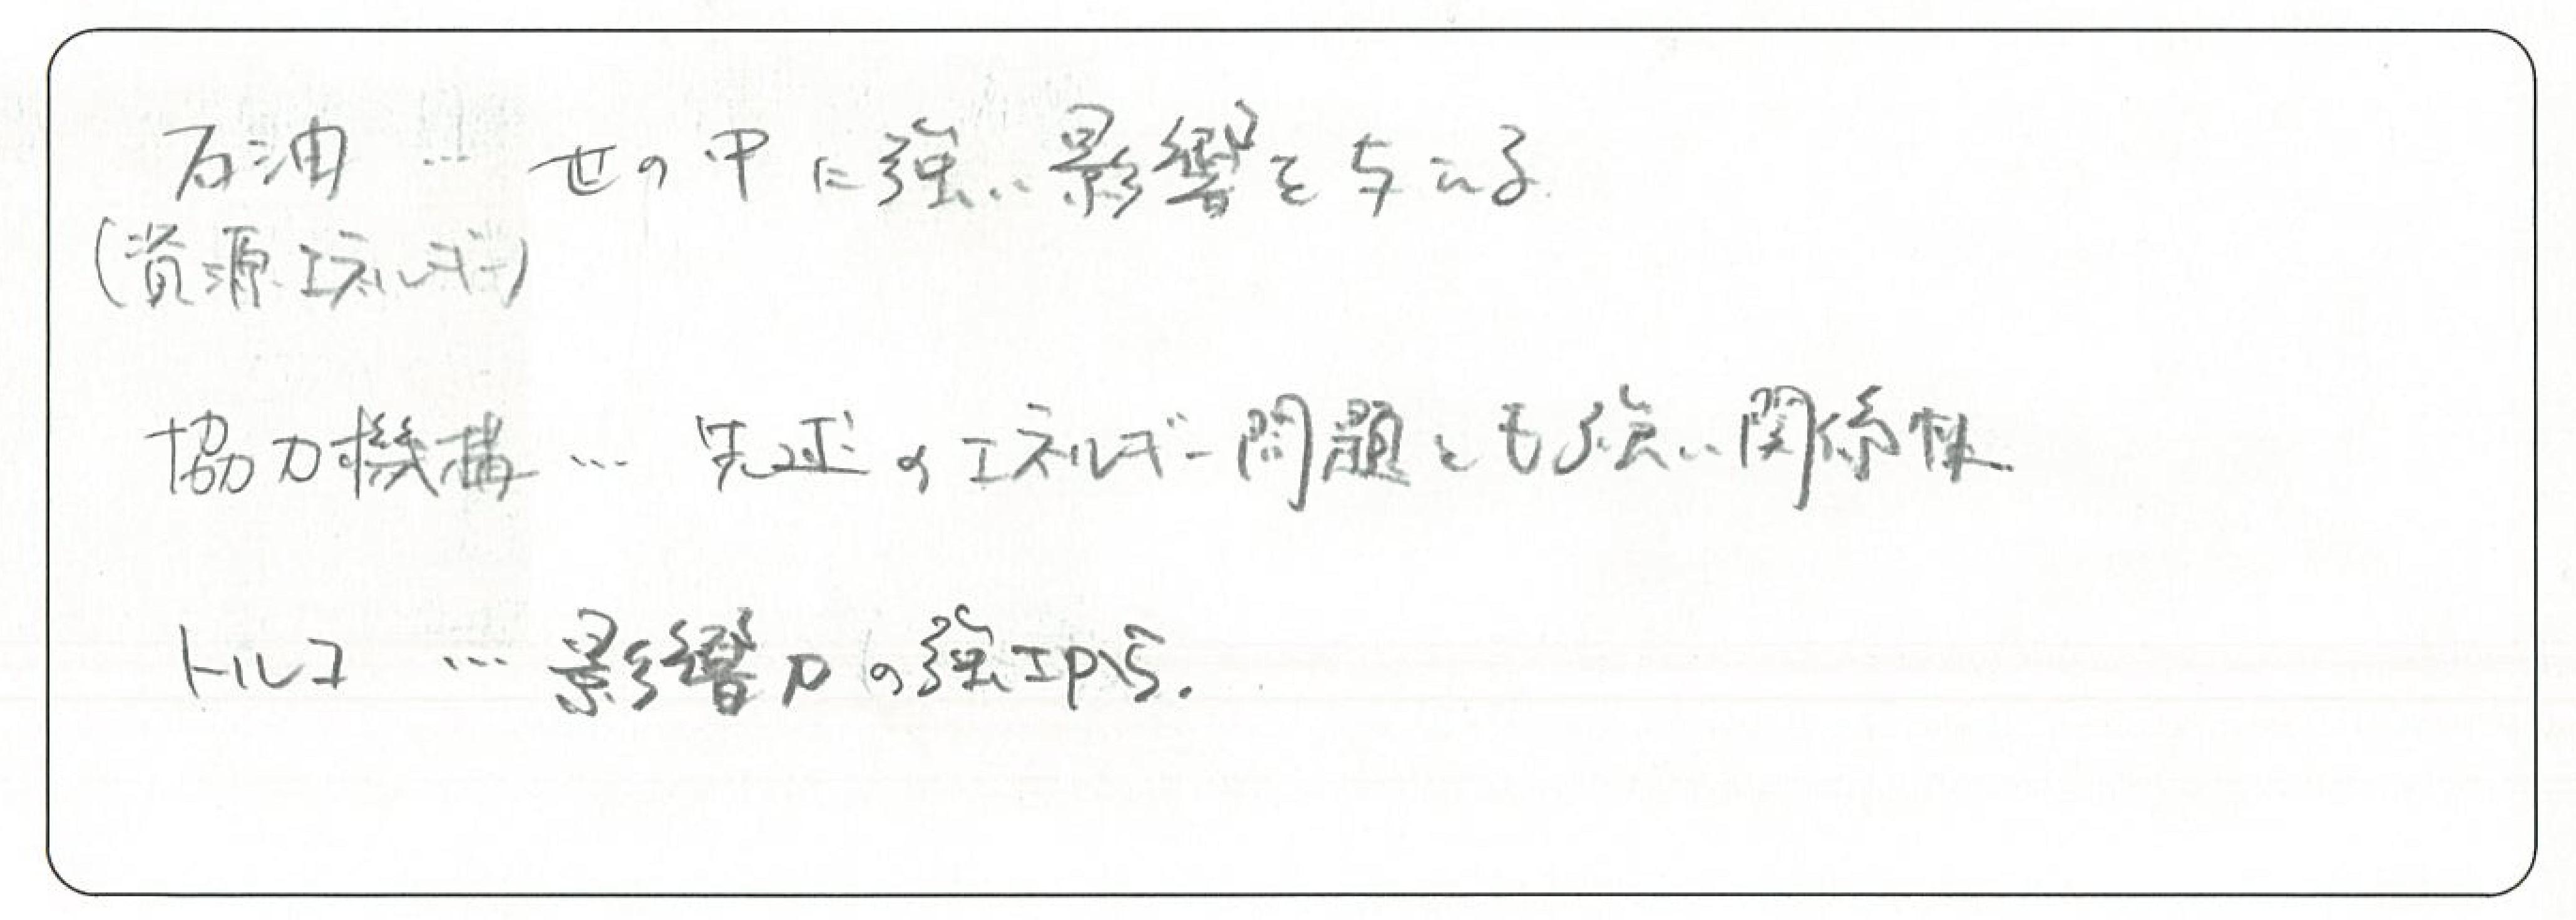 石油 … 世の中に強い影響を与える
(資源エネルギー)
協力機構 … 先述のエネルギー問題とも強い関係性
トルコ … 影響力の強さから.